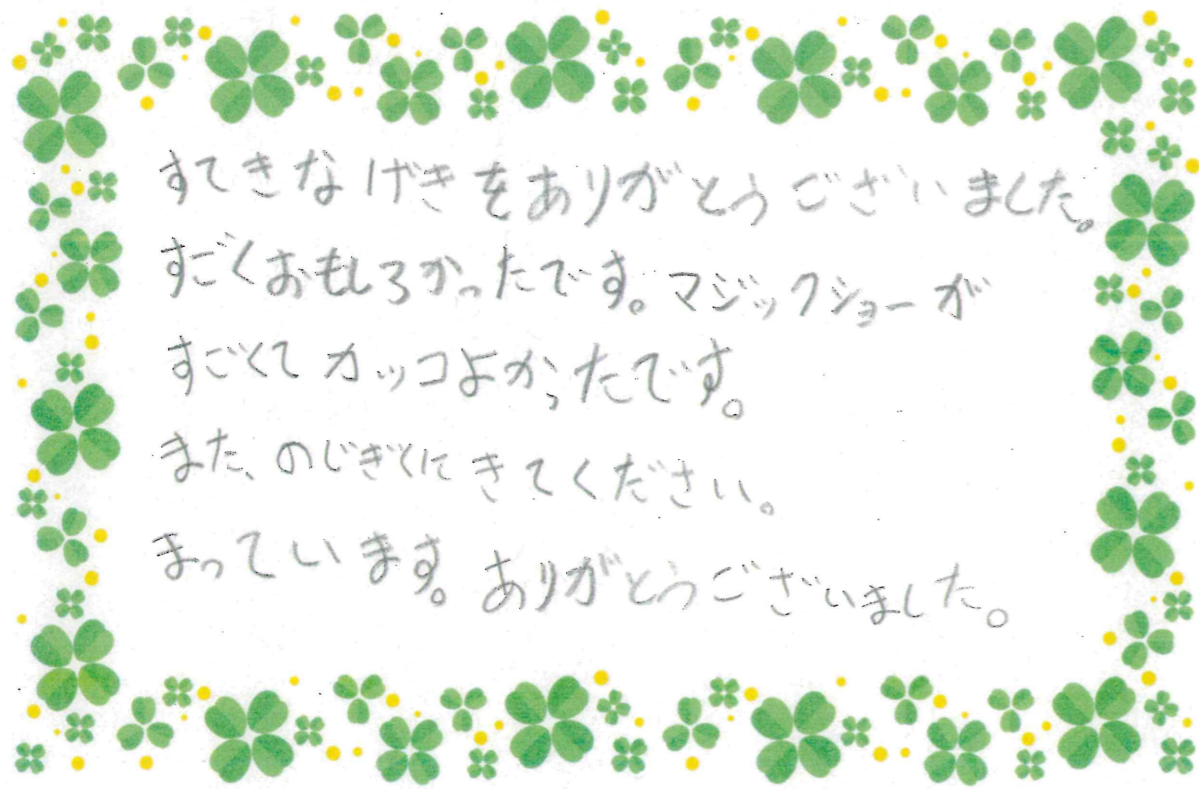 すてきなげきをありがとうございました。
すごくおもしろかったです。マジックショーが
すごくてカッコよかったです。
また、のじぎくにきてください。
まっています。ありがとうございました。